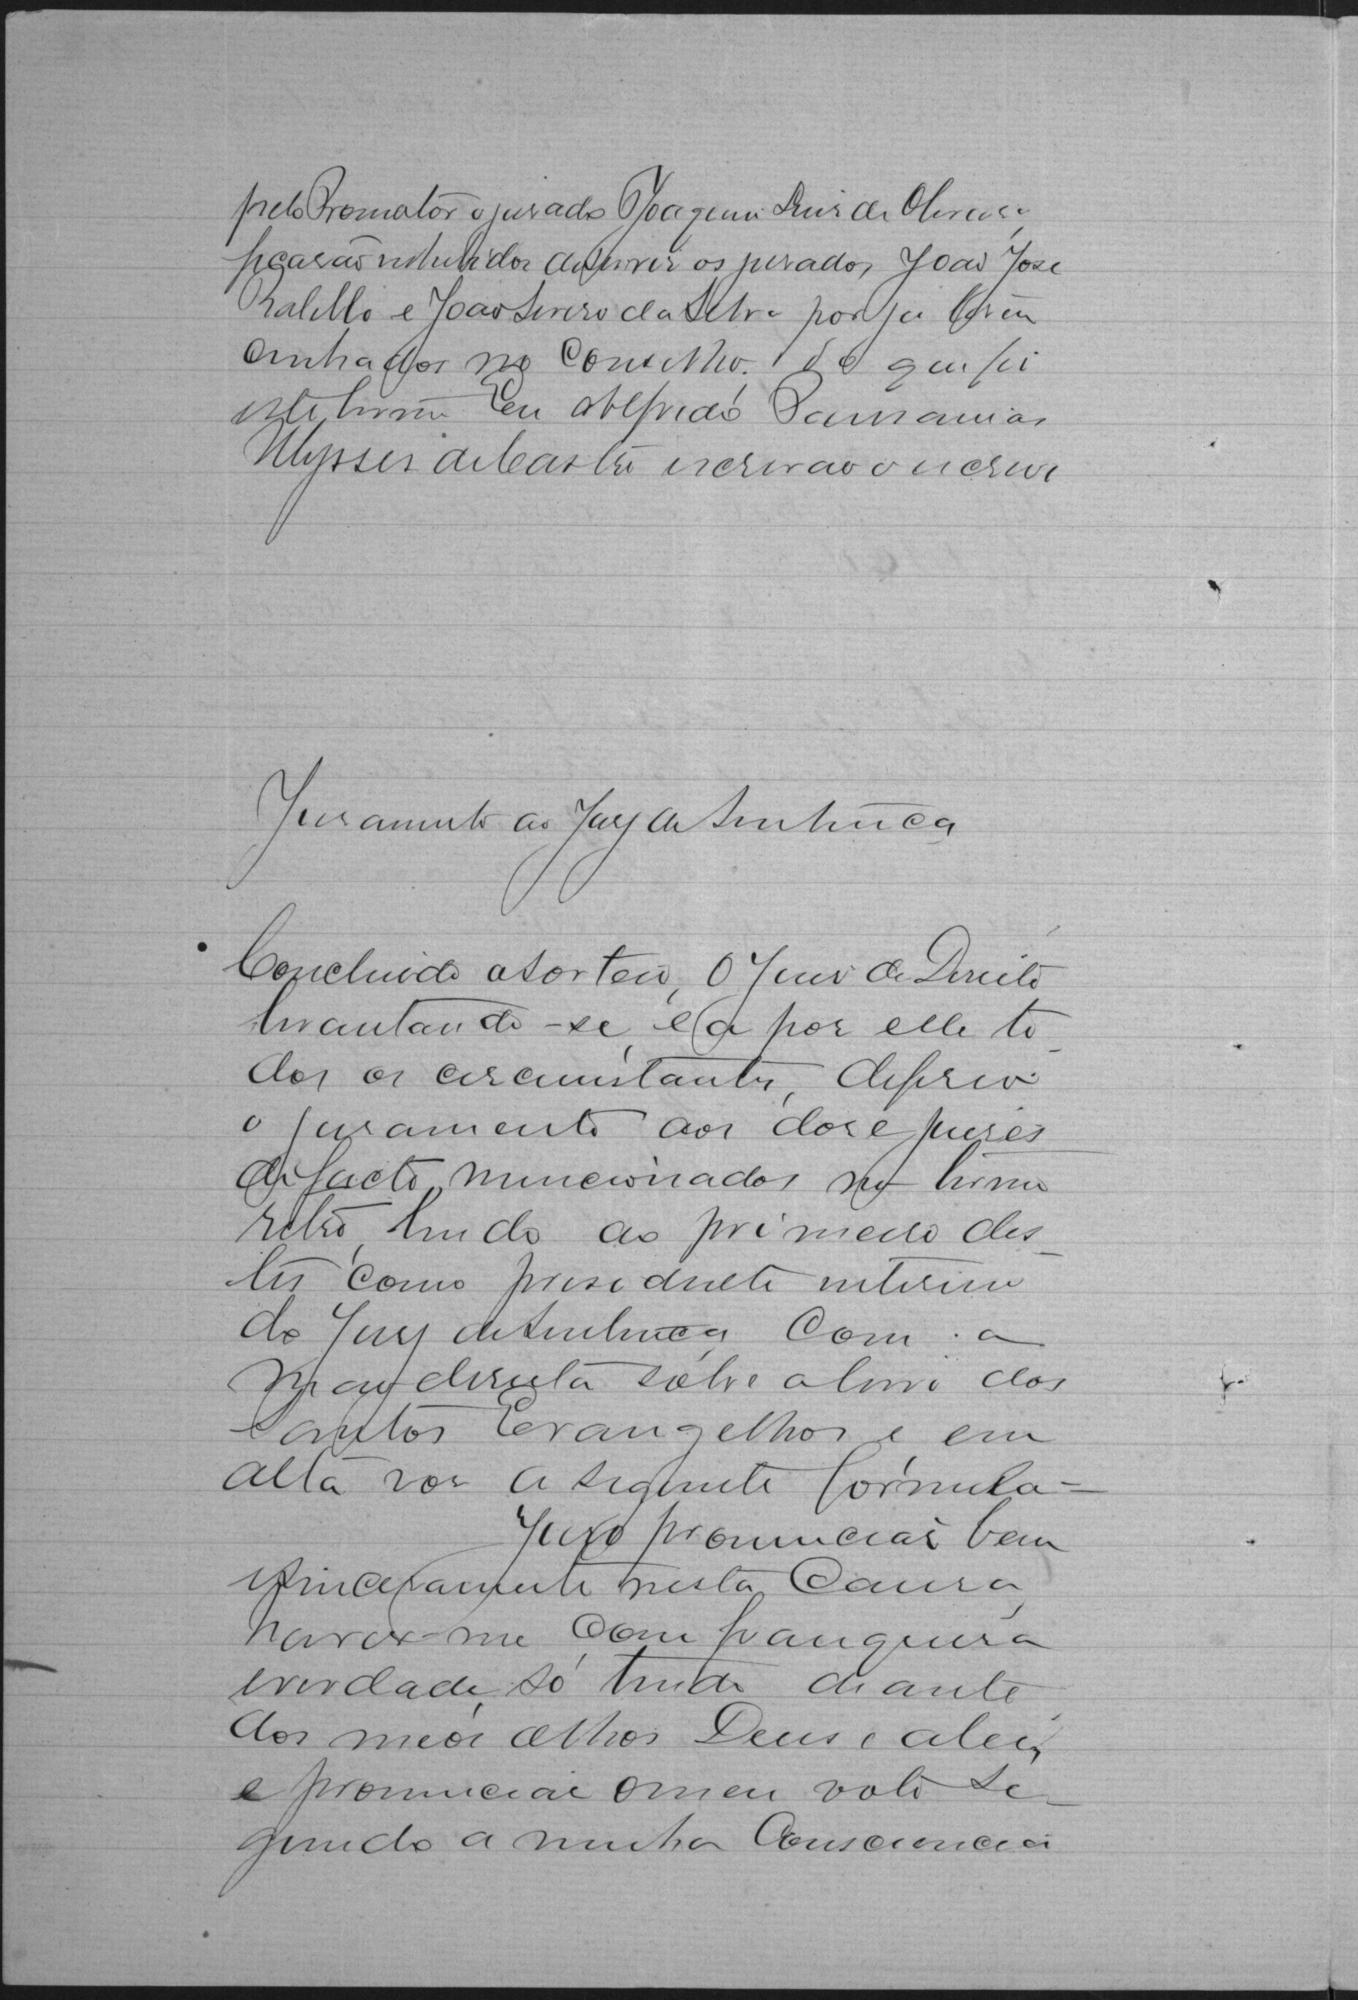 pelo Promotor o jurado Joaquim Luis de Oliveira,
ficarão inhibidos de servir os jurados João José
Rabello e João Severo da Silva por já terem
cunhados no Conselho. Do que fiz
este termo Eu Alfredo
Ulysses de Castro escrivão o escrevi
Juramento ao Jury de Sentença
Concluido o sorteio, O Juiz de Direito
levantando-se, e a por elle to-
dos os circumstantes, deferio
o juramento aos dose juises
de facto, mencionados no termo
retro, lendo ao primeiro des-
tes como presidente interino
do Jury de Sentença com a
mão direita sobre o livro dos
Santos Evangelhos e em
alta voz a seguinte formula =
Juro pronunciar bem
e sinceramente nesta Causa,
haver-me com franquesa
e verdade, só tendo diante
dos meos olhos Deus e a lei,
e pronunciar o meu voto se-
gundo a minha Consciencia